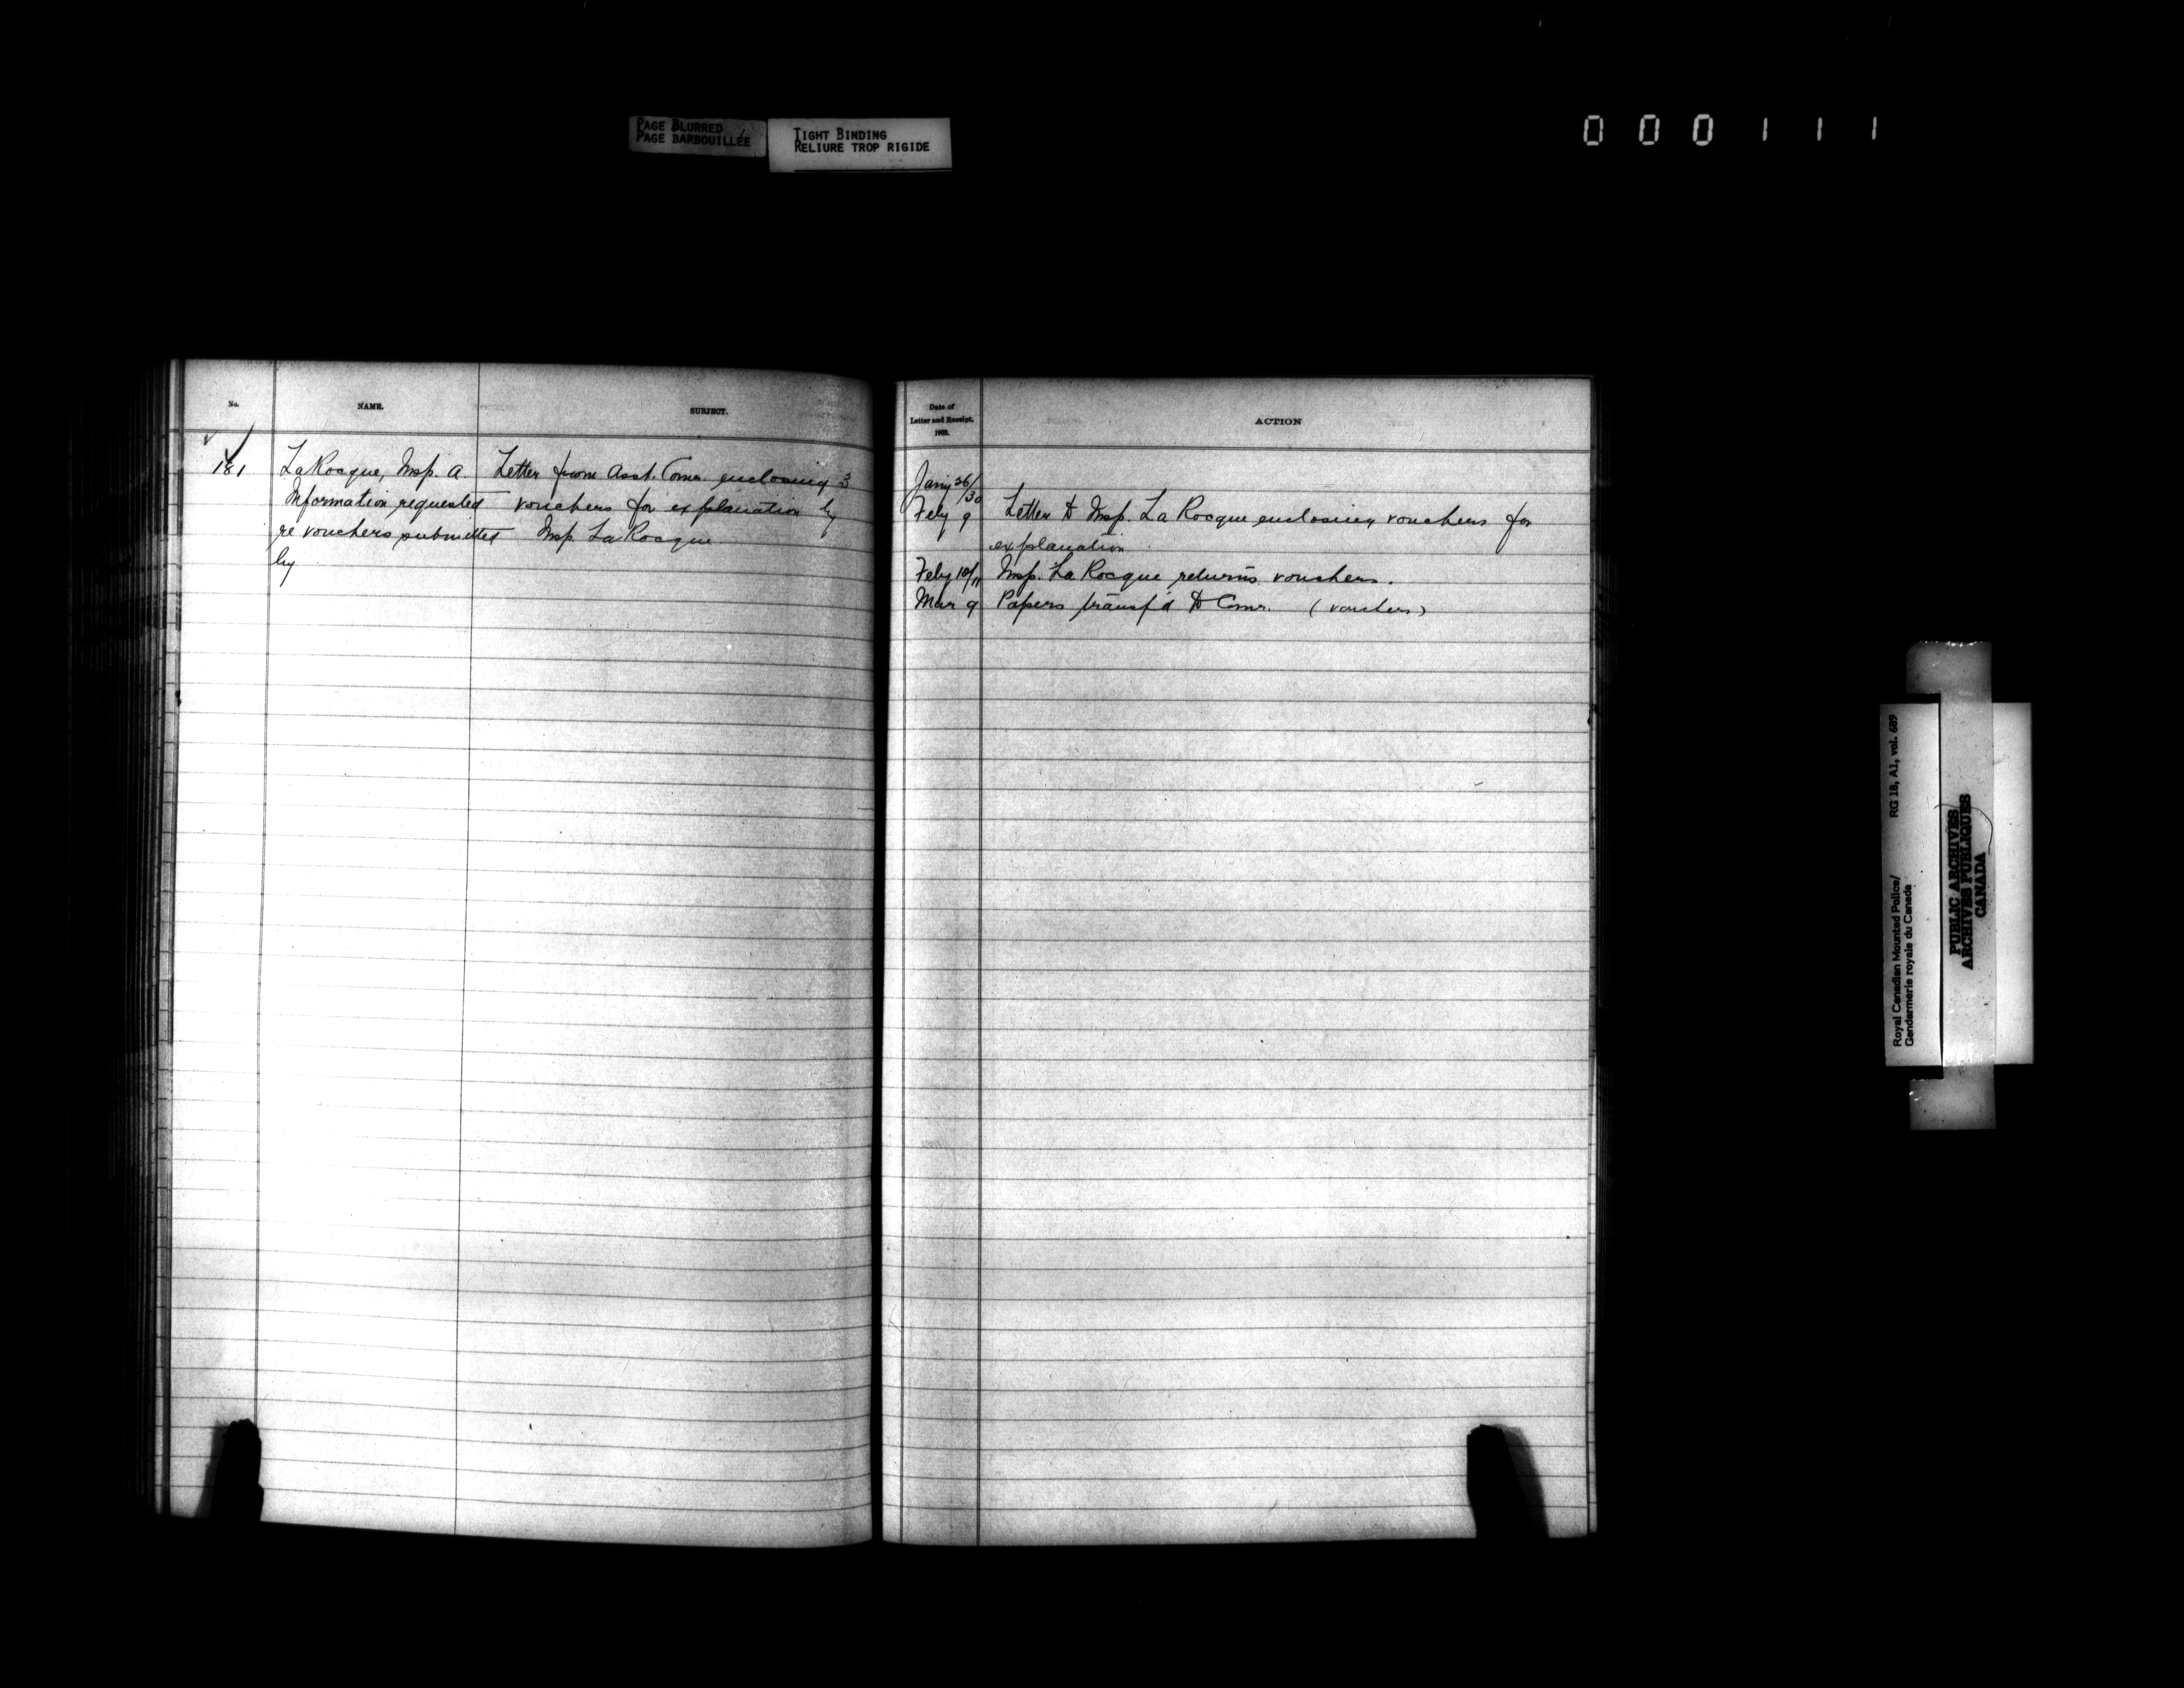 PAGE BLURRED
PAGE BARBOUILLÉE
TIGHT BINDING
RELIURE TROP RIGIDE
000111
No.
NAME.
SUBJECT.
181
LaRocque, Insp. A.
Information requested
re vouchers submitted
by
Letter from Asst. Comr. enclosing 3
vouchers for explanation by
Insp. LaRocque
Date of
Letter and Receipt.
1903.
ACTION
Jany 26/30
Feby 9 Letter to Insp. La Rocque enclosing vouchers for
explanation.
Feby 10/11 Insp. La Rocque returns vouchers.
Mar 9 Papers transf'd to Comr. (vouchers)
Royal Canadian Mounted Police/
Gendarmerie royale du Canada
RG 18, A1, vol. 689
PUBLIC ARCHIVES
ARCHIVES PUBLIQUES
CANADA